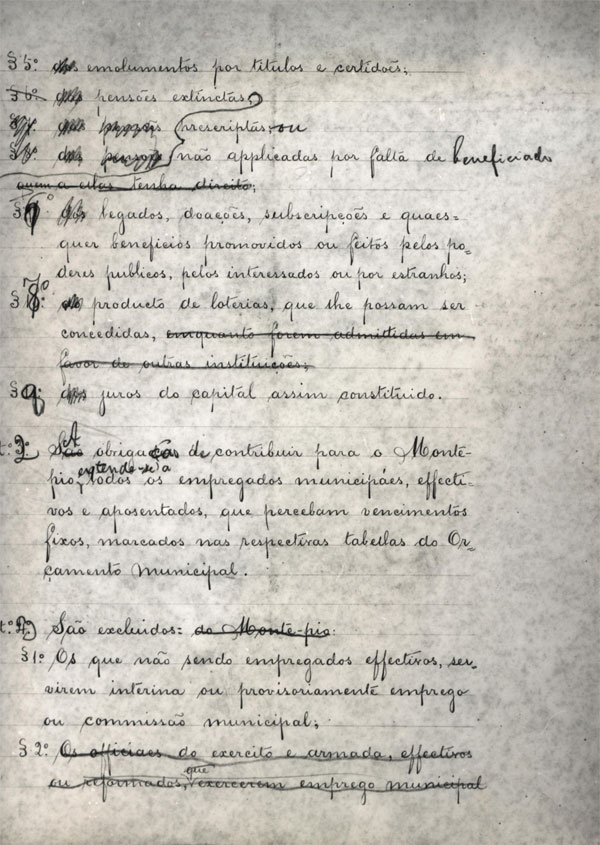 § 5º. das emolumentos por titulos e certidões;
§ 6º. das pensões extinctas,
prescriptas, ou
das pensões não applicadas por falta de beneficiado
quem a ellas tenha direito;
§ legados, doações, subscripções e quaes=
quer beneficios promovidos ou feitos pelos po=
deres publicos, pelos interessados ou por estranhos;
§ 8º. do producto de loterias, que lhe possam ser
concedidas, emquanto forem admittidas em
favor de outras instituições;
§ 9º. dos juros do capital assim constituido.
t.º 3º A obrigação de contribuir para o Monte-
entende-se a
pio, todos os empregados municipáes, effecti-
vos e aposentados, que percebam vencimentos
fixos, marcados nas respectivas tabellas do Or=
çamento Municipal.
t.º São excluidos: do Monte-pio:
§ 1º. Os que não sendo empregados effectivos, ser-
virem interina ou provisoriamente emprego
ou commissão municipal;
§ 2º. Os officiaes do exercito e armada, effectivos
que
ou reformados, exercerem emprego municipal